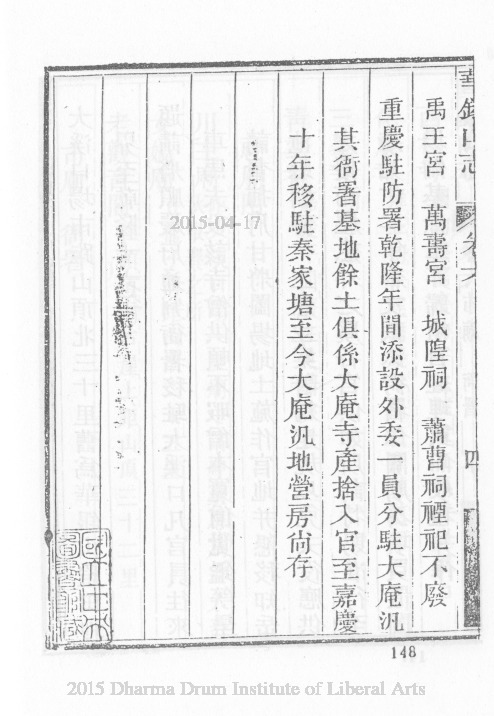 華鎣山志 卷六 四
禹王宮 萬壽宮 城隍祠 蕭曹祠禋祀不廢
重慶駐防署乾隆年間添設外委一員分駐大庵汛
其衙署基地餘土俱係大庵寺產捨入官至嘉慶
十年移駐秦家塘至今大庵汛地營房尚存
2015-04-17
148
2015 Dharma Drum Institute of Liberal Arts